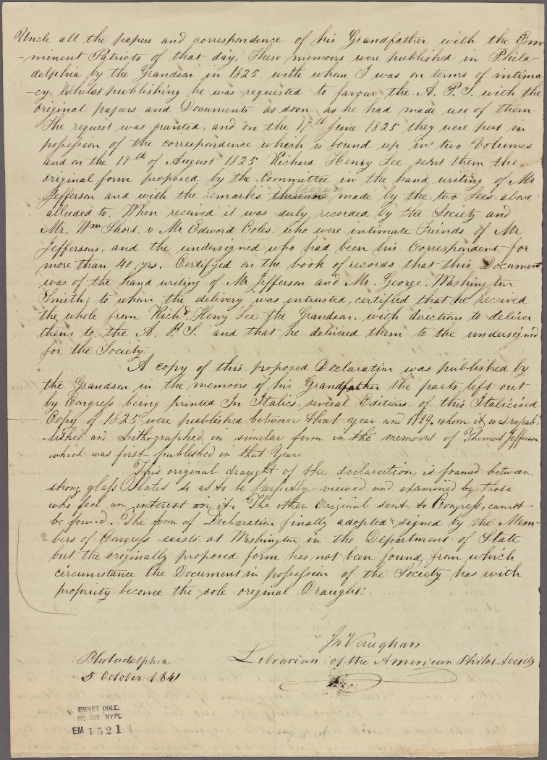 Uncle all the papers and correspondence of his Grandfather with the Em-
-minent Patriots of that day. These memoirs were published in Phila-
delphia by the Grandson in 1825 with whom I was on terms of intima-
-cy, whilst publishing he was requested to favour the A. P. S. with the
original papers and Documents as soon as he had made use of them
The request was granted, and on the 17th June 1825 they were put in
possession of the correspondence which is bound up in two Volumes
and on the 18th of August 1825 Richard Henry Lee sends them the
original form proposed by the Committee in the hand writing of Mr
Jefferson and with the remarks made by the two Lees above
alluded to. When received it was duly recorded by the Society and
Mr. Wm Short. & Mr Edward Coles. who were intimate Friends of Mr
Jeffersons, and the undersigned who had been his Correspondent for
more than 40 yrs. Certifyed on the book of records that this Document
was of the hand writing of Mr Jefferson and Mr. George Washington
Smith, to whom the delivery was intrusted, certified that he received
the whole from Richd Henry Lee the Grandson, with directions to deliver
them to the A. P. S. and that he delivered them to the undersigned
for the Society
A Copy of this proposed Declaration was published by
the Grandson in the memoirs of his Grandfather the parts left out
by Congress being printed In Italics, several Editions of this Italicised
Copy of 1825 were published between that year and 1829, when it was repub-
-lished and Lithographed in similar form in the memoirs of Thomas Jefferson
which was first published in that Year
This original draught of the declaration is framed between
strong glass Plates so as to be perfectly viewed and examined by those
who feel an interest in it. The other Original sent to Congress, cannot
be found. The form of Declaration finally adopted & signed by the Mem-
bers of Congress exists at Washington in the Department of State
but the originally proposed form has not been found, from which
circumstance the Document in possession of the Society has with
propriety become the sole original Draught.
Jn Vaughan
Librarian of the American Philos Society
Philadelphia
5 October 1841
EMMET COLL.
MS. DIV. NYPL
EM 1521